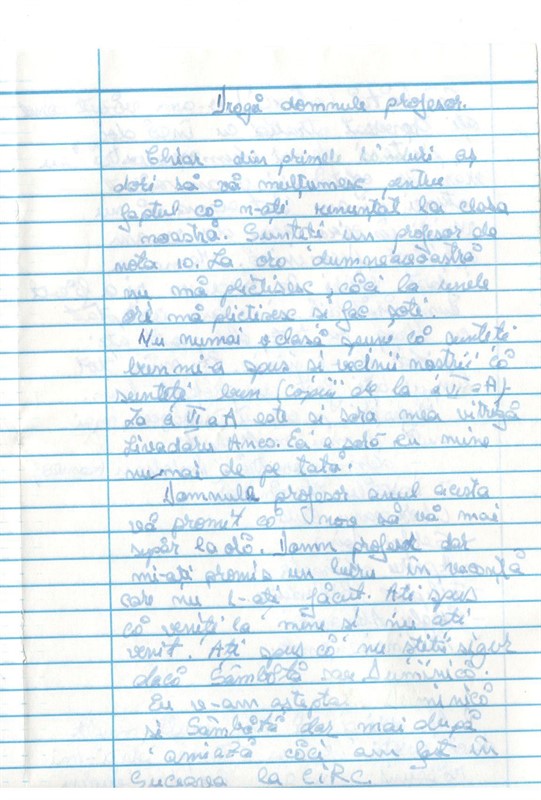 Dragă domnule profesor.
Chiar din primele rânduri aș
dori să vă mulțumesc pentru
faptul că n-ați renunțat la clasa
noastră. Sunteți un profesor de
nota 10. La ora dumneavoastră
nu mă plictisesc, căci la unele
ore mă plictisesc si fac șotii.
Nu numai o clasă spune că sunteți
bun mi-a spus si vecinii nostrii că
sunteți bun (copiii de la a VI-a A).
La a VI a A este si sora mea vitrigă
Livadaru Anca. Ea e soră cu mine
numai de pe tată.
Domnule profesor anul acesta
vă promit că să vă mai
supăr la oră. Domn profesor dar
mi-ati promis un lucru în vacanță
care nu l-ati făcut. Ati spus
că veniti la mine si nu ati
venit. Ati spus că nu știti sigur
dacă Sâmbătă sau Duminică.
Eu v-am astepta minică
si Sâmbătă dar mai după
amiază căci am fost în
Suceava la CIRC